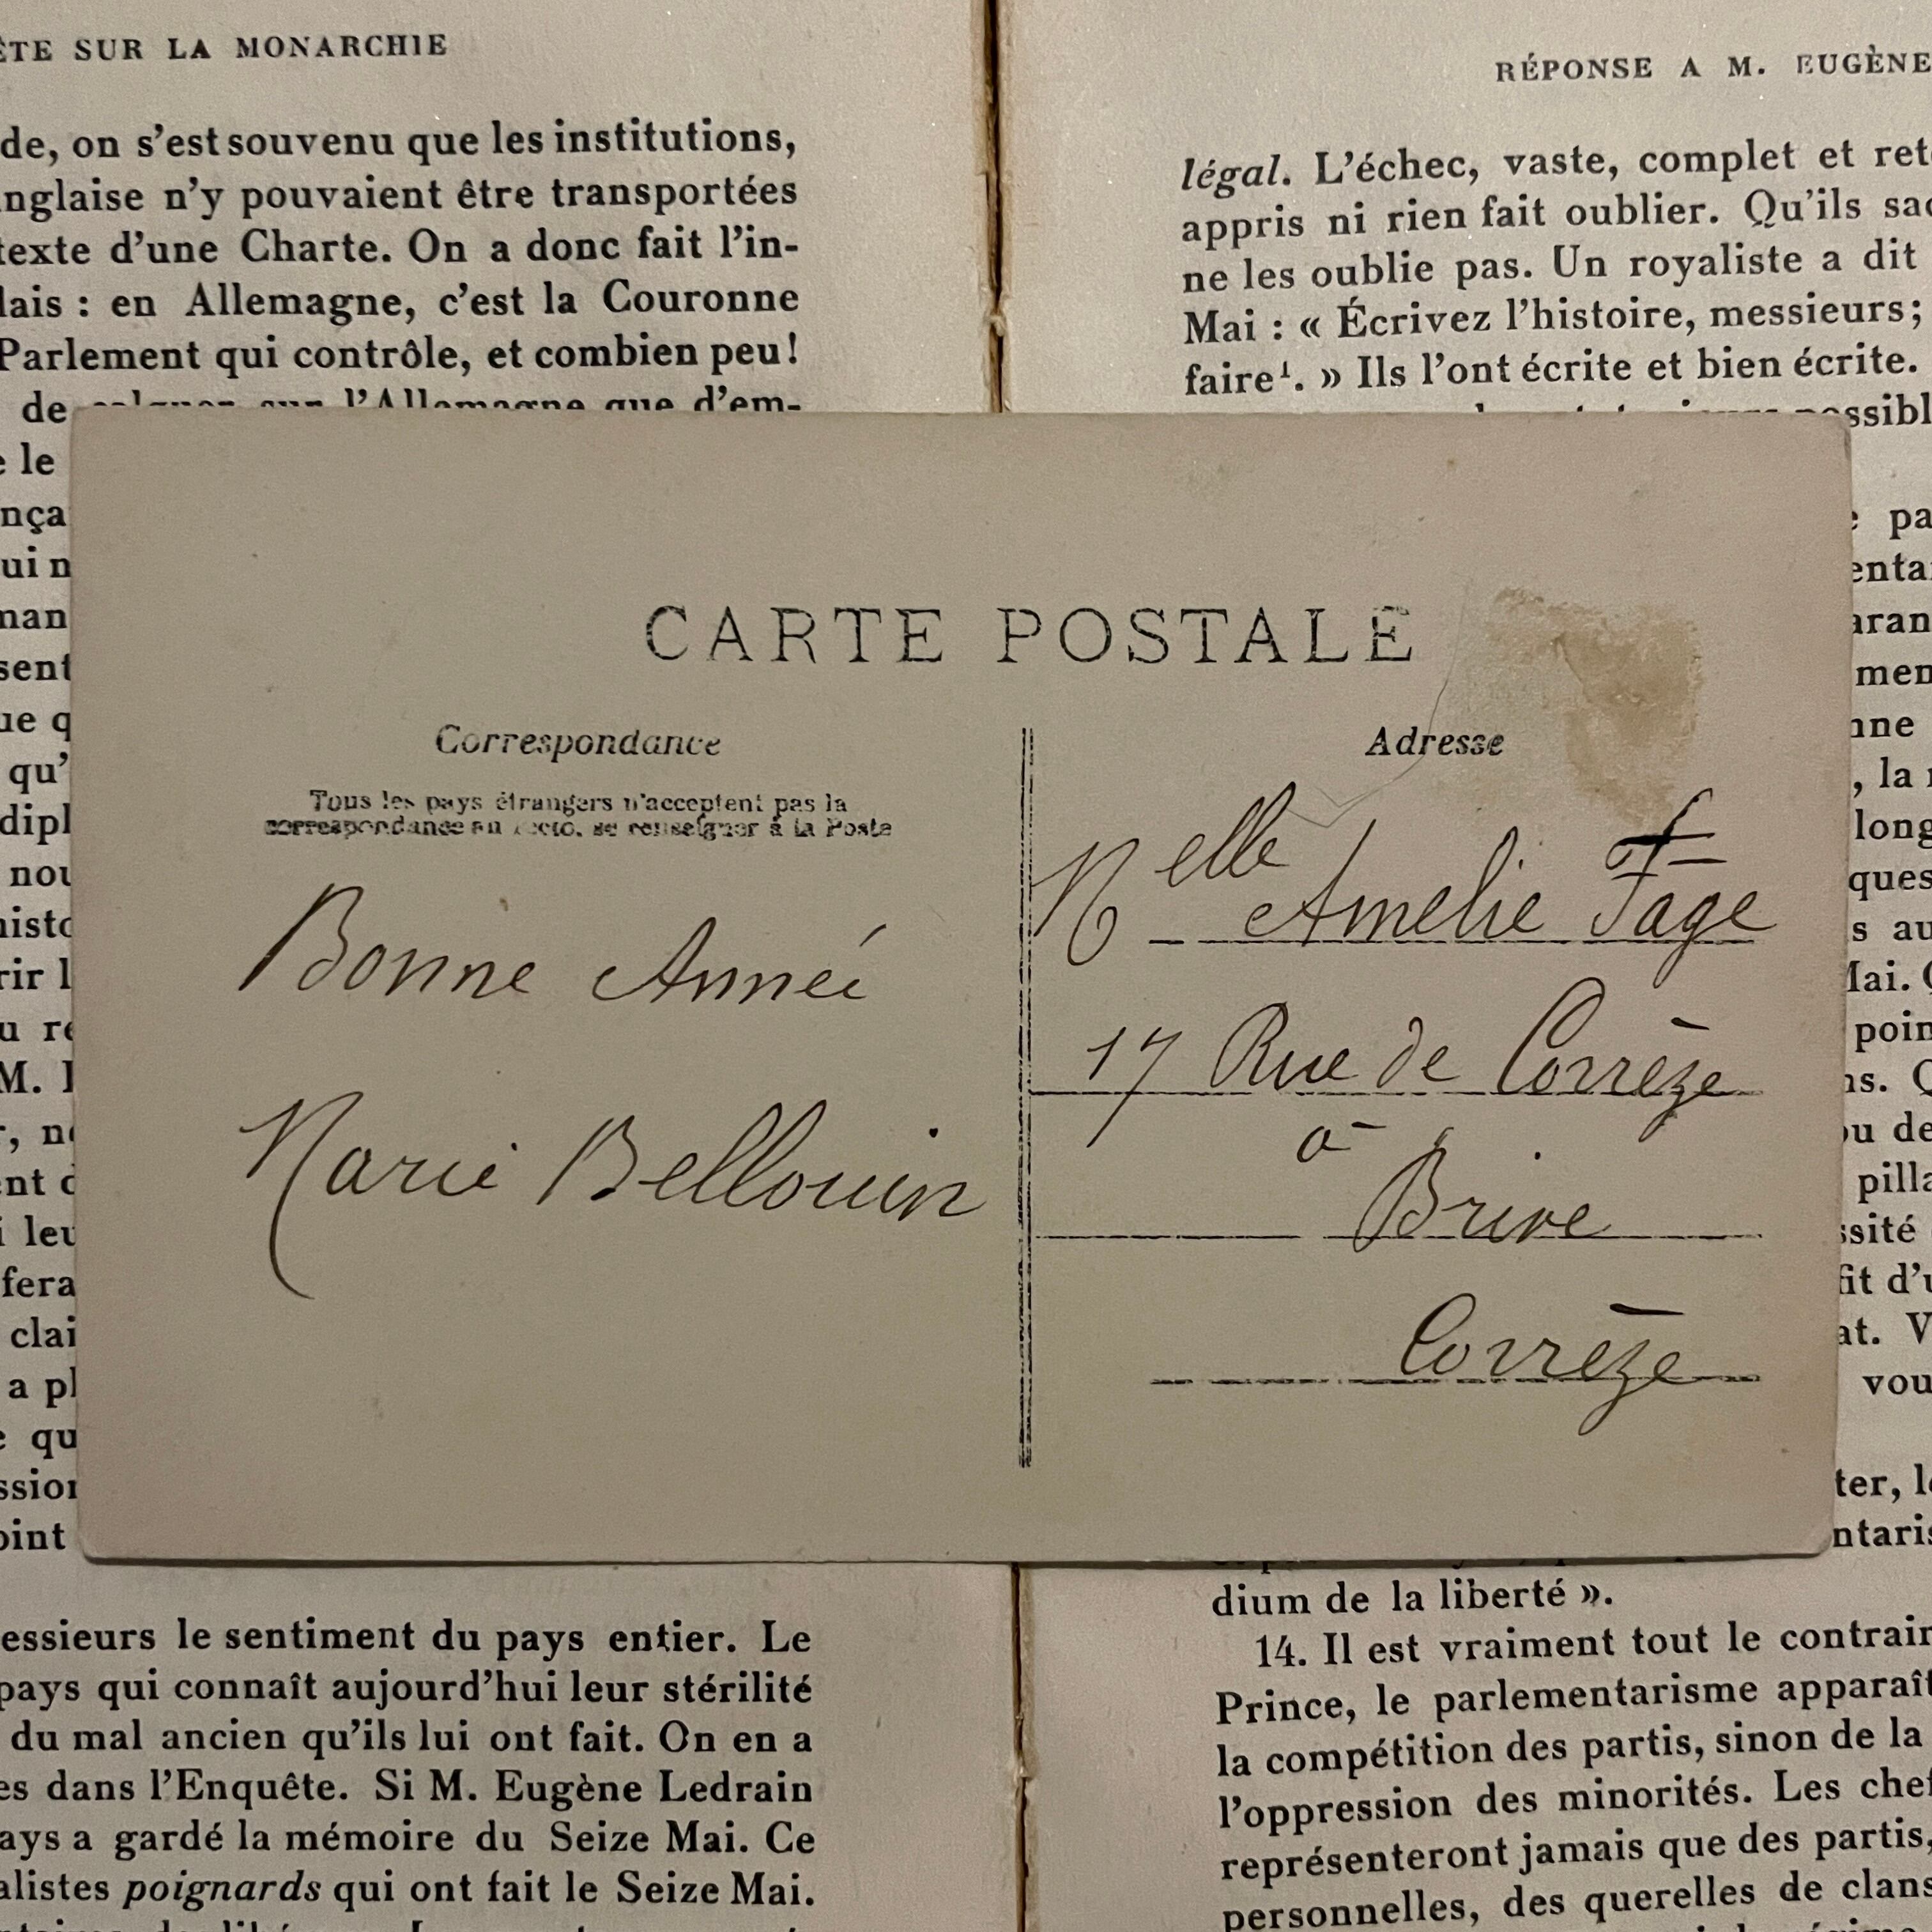 ÊTE SUR LA MONARCHIE
de, on s'est souvenu que les institutions,
nglaise n'y pouvaient être transportées
texte d'une Charte. On a donc fait l'in-
lais : en Allemagne, c'est la Couronne
Parlement qui contrôle, et combien peu!
de calquer sur l'Allemagne que d'em-
e le
nça
ui n
man
sent
ue q
qu'
dipl
nou
histo
rir l
u re
M. 
r, ne
ent d
i leu
fera
clai
a pl
e qu
ssion
oint
essieurs le sentiment du pays entier. Le
pays qui connaît aujourd'hui leur stérilité
du mal ancien qu'ils lui ont fait. On en a
es dans l'Enquête. Si M. Eugène Ledrain
ays a gardé la mémoire du Seize Mai. Ce
alistes poignards qui ont fait le Seize Mai.
RÉPONSE A M. EUGÈNE
légal. L'échec, vaste, complet et ret
appris ni rien fait oublier. Qu'ils sac
ne les oublie pas. Un royaliste a dit
Mai : « Écrivez l'histoire, messieurs;
faire¹. » Ils l'ont écrite et bien écrite.
possibl
e pa
entai
aran
men
nne
, la
long
ques
s au
Mai.
poin
ns.
ou de
pilla
ssité
fit d'u
at. V
vou
ter, l
ntaris
dium de la liberté ».
14. Il est vraiment tout le contrair
Prince, le parlementarisme apparaît
la compétition des partis, sinon de la
l'oppression des minorités. Les chef
représenteront jamais que des partis,
personnelles, des querelles de clans
CARTE POSTALE
Correspondance
Tous les pays étrangers n'acceptent pas la
correspondance au recto, se renseigner à la Poste
Bonne Anneé
Marie Bellouin
Adresse
Melle Amelie Fage
17 Rue de Corrèze
à
Brive
Corrèze